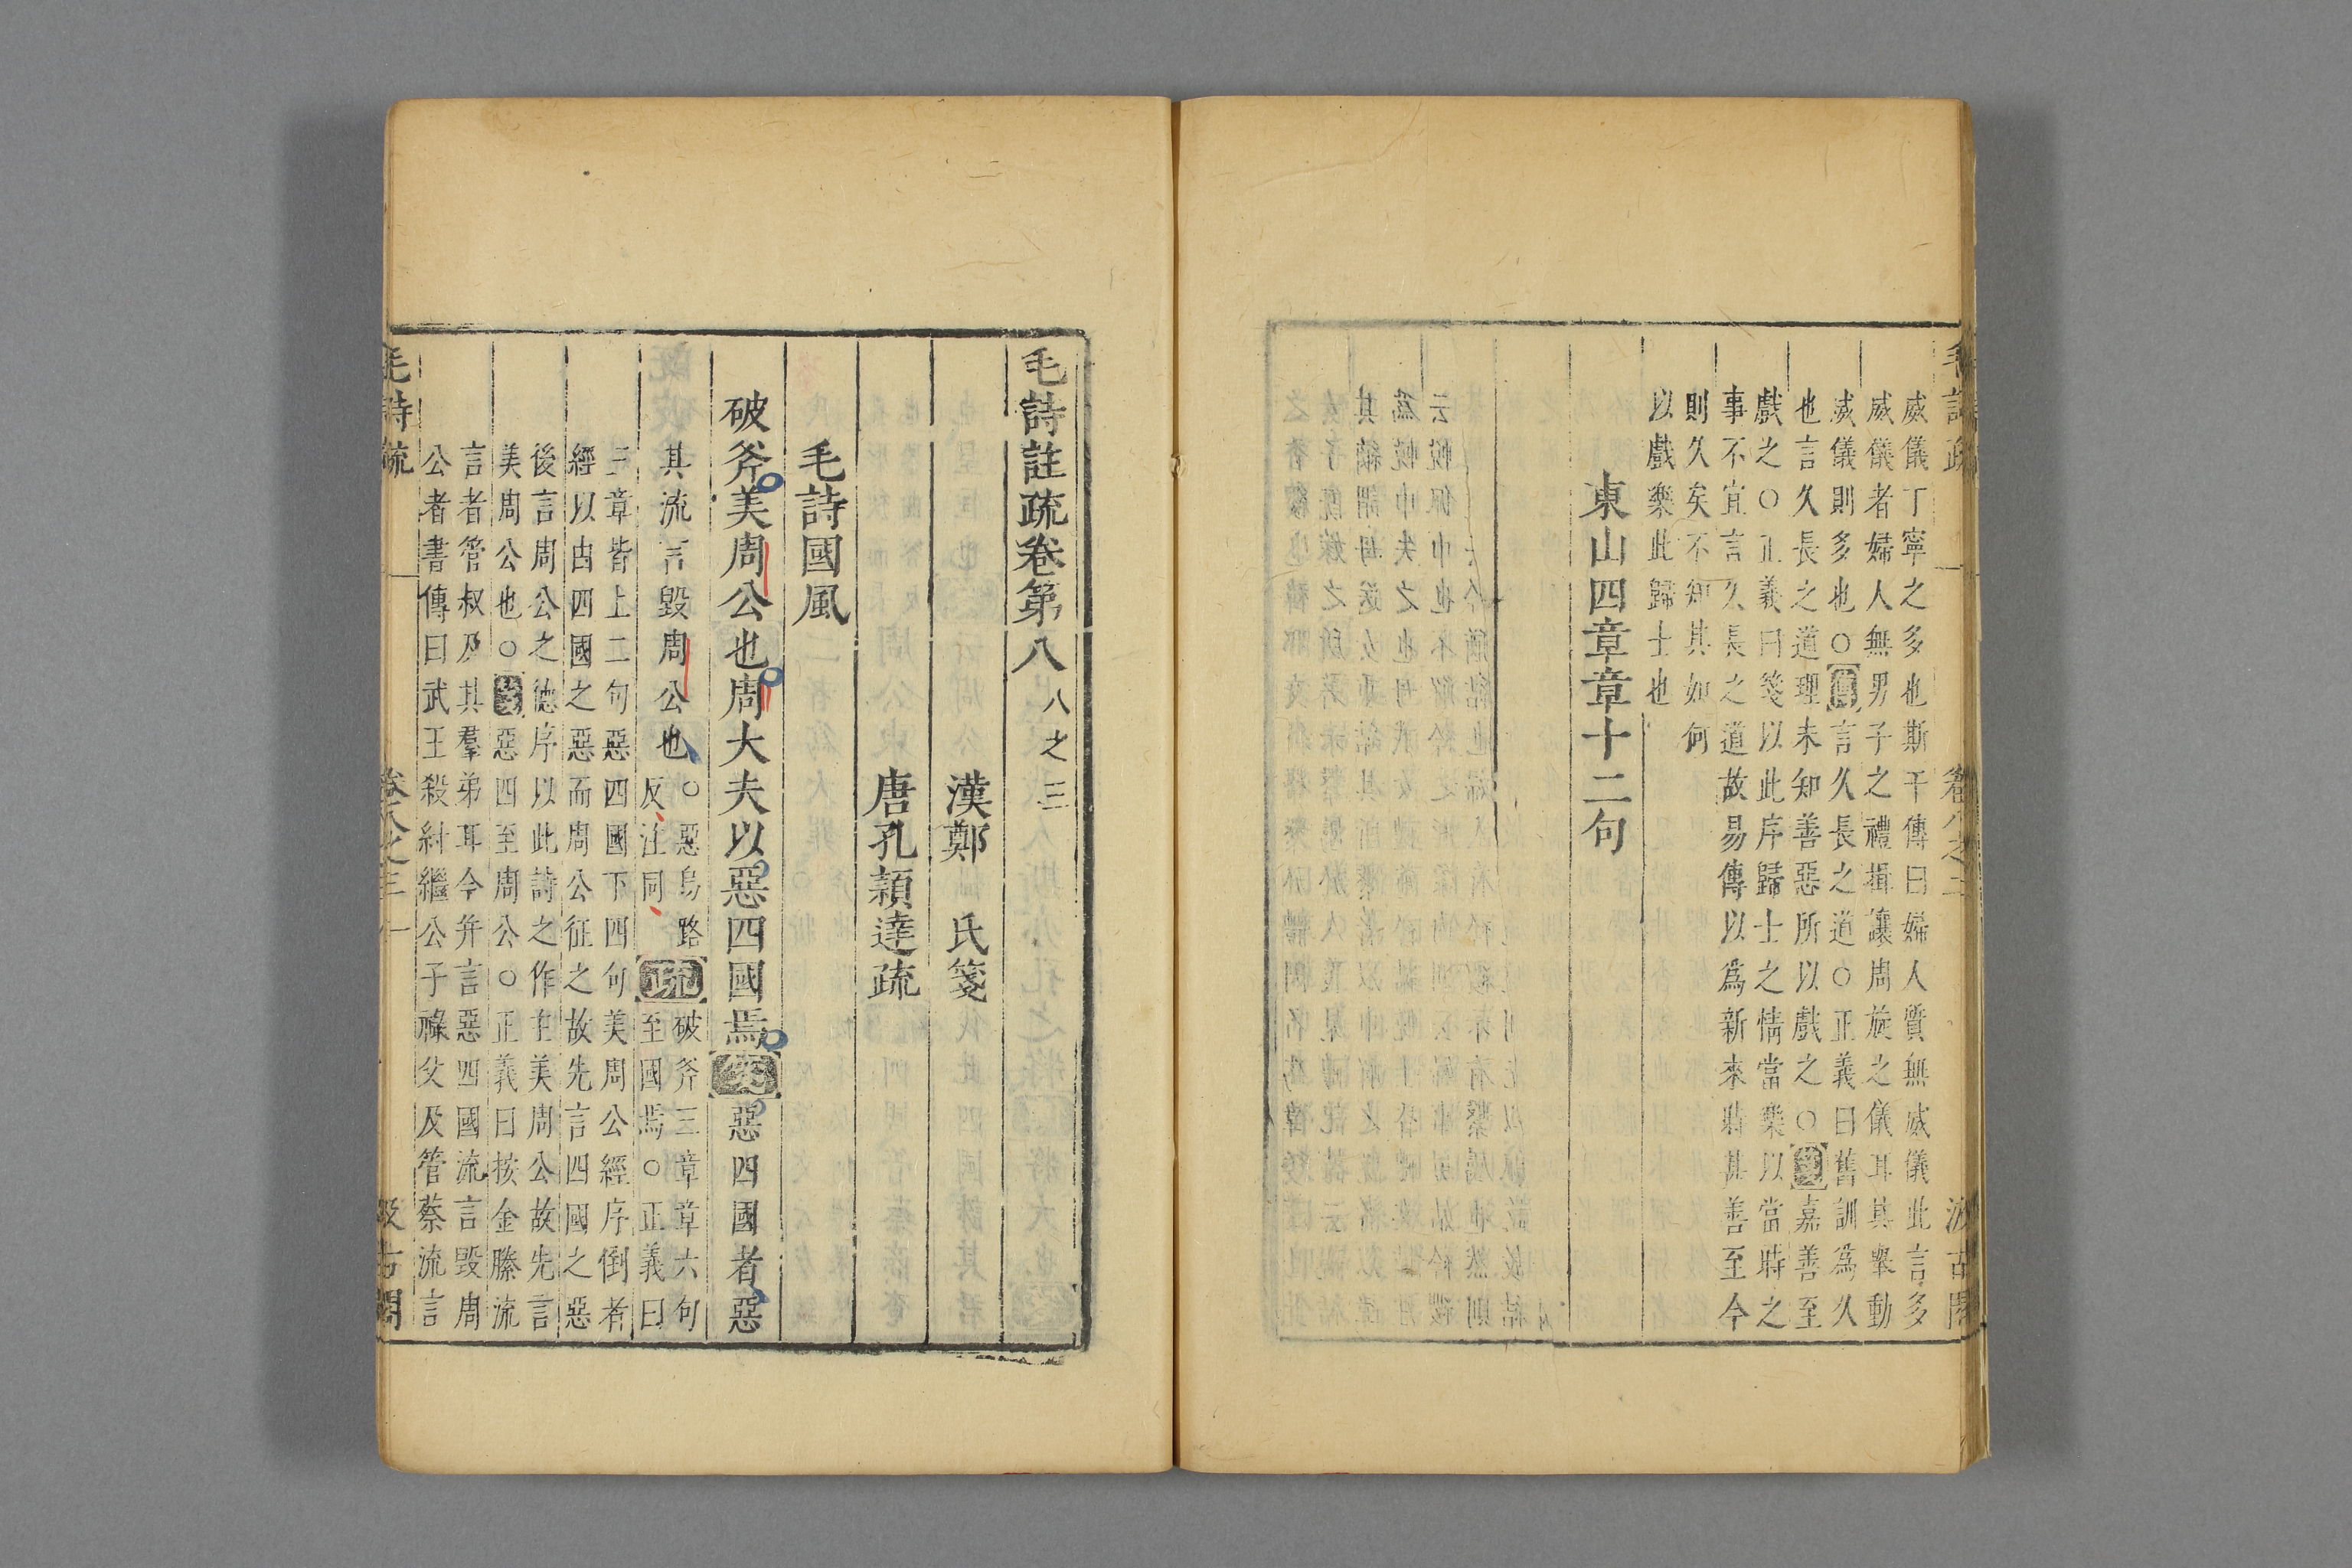 毛詩疏
汲古閣
威儀丁寧之多也斯干傳曰婦人質無威儀此言多
威儀者婦人無男子之禮揖讓周旋之儀耳其舉動
威儀則多也○傳言久長之道○正義曰舊訓為久
也言久長之道理未知善惡所以戲之○箋嘉善至
戲之○正義曰箋以此序歸士之情當樂以當時之
事不宜言久長之道故易傳以為新來時甚善至今
則久矣不知其如何
以戲樂此歸士也
東山四章章十二句
毛詩註疏卷第八 八之三
漢鄭 氏箋
唐孔穎達疏
毛詩國風
破斧美周公也周大夫以惡四國焉箋惡四國者惡
其流言毀周公也○惡烏路
反注同疏破斧三章章六句
至國焉○正義曰
三章皆上二句惡四國下四句美周公經序倒者
經以由四國之惡而周公征之故先言四國之惡
後言周公之德序以此詩之作主美周公故先言
美周公也○箋惡四至周公○正義曰按金縢流
言者管叔及其羣弟耳今并言惡四國流言毀周
公者書傳曰武王殺紂繼公子祿父及管蔡流言
毛詩疏
卷八之三 一
汲古閣